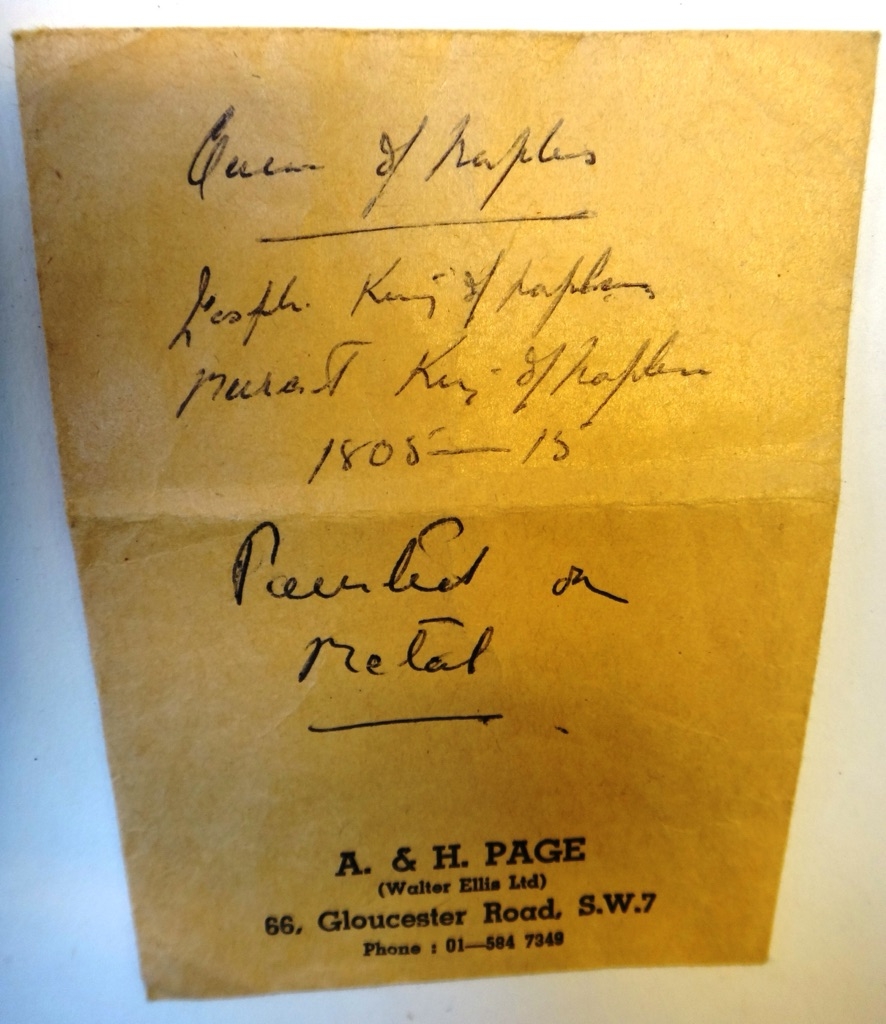 Queen of Naples
Joseph. King of Naples
Murat King of Naples
1805 — 15
Painted on
Metal
A. & H. PAGE
(Walter Ellis Ltd)
66, Gloucester Road, S.W.7
Phone : 01—584 7349